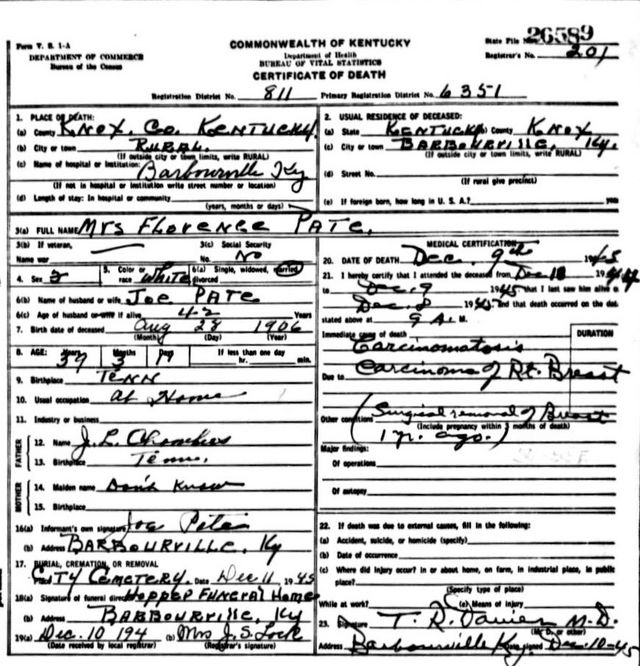 26589
Form V. S. 1-A
COMMONWEALTH OF KENTUCKY
State File No.
DEPARTMENT OF COMMERCE
Department of Health
Registrar's No. 201
Bureau of the Census
BUREAU OF VITAL STATISTICS
CERTIFICATE OF DEATH
Registration District No. 811 Primary Registration District No. 6351
1. PLACE OF DEATH:
(a) County Knox. Co. Kentucky.
(b) City or town Rural.
(If outside city or town limits, write RURAL)
(c) Name of hospital or institution: Barbourville Ky
(If not in hospital or institution write street number or location)
(d) Length of stay: In hospital or community
(years, months or days)
2. USUAL RESIDENCE OF DECEASED:
(a) State Kentucky (b) County Knox
(c) City or town Barbourville, Ky.
(If outside city or town limits, write RURAL)
(d) Street No.
(If rural give precinct)
(e) If foreign born, how long in U. S. A.? years
3(a) FULL NAME Mrs Florence Pate.
3(b) If veteran,
Name war
3(c) Social Security
No. No
4. Sex
5. Color or race White
6(a) Single, widowed, married, divorced
6(b) Name of husband or wife Joe Pate
6(c) Age of husband or wife if alive 42 Years
7. Birth date of deceased Aug 28 1906
(Month) (Day) (Year)
8. AGE: Years Months Days If less than one day
39 3 11 hr. min.
9. Birthplace Tenn
10. Usual occupation At Home
11. Industry or business
FATHER
12. Name J. L. Chambers
13. Birthplace Tenn.
MOTHER
14. Maiden name Don't Know
15. Birthplace
16(a) Informant's own signature Joe Pate
(b) Address Barbourville, Ky
17. BURIAL, CREMATION, OR REMOVAL
City Cemetery. Date Dec 11 1945
18(a) Signature of funeral director Hopper Funeral Home
(b) Address Barbourville, Ky
19(a) Dec. 10 194 (b) Mrs J. S. Lock
(Date received by local registrar) (Registrar's signature)
MEDICAL CERTIFICATION
20. DATE OF DEATH Dec. 9th 1945
21. I hereby certify that I attended the deceased from Dec 1944
to Dec. 9 1945 that I last saw him alive on
Dec. 8 1945 and that death occurred on the date
stated above at 9 A. M.
Immediate cause of death DURATION
Carcinomatosis
Due to Carcinoma of Rt. Breast
Other conditions (Surgical removal of Breast
(Include pregnancy within 3 months of death)
1 yr. ago.)
Major findings:
Of operations
Of autopsy
22. If death was due to external causes, fill in the following:
(a) Accident, suicide, or homicide (specify)
(b) Date of occurrence
(c) Where did injury occur? in or about home, on farm, in industrial place, in public
place?
(Specify type of place)
While at work? (e) Means of injury
23. Signature T. R. Davies M.D.
(M. D. or other)
Address Barbourville Ky. Date signed Dec-10-45